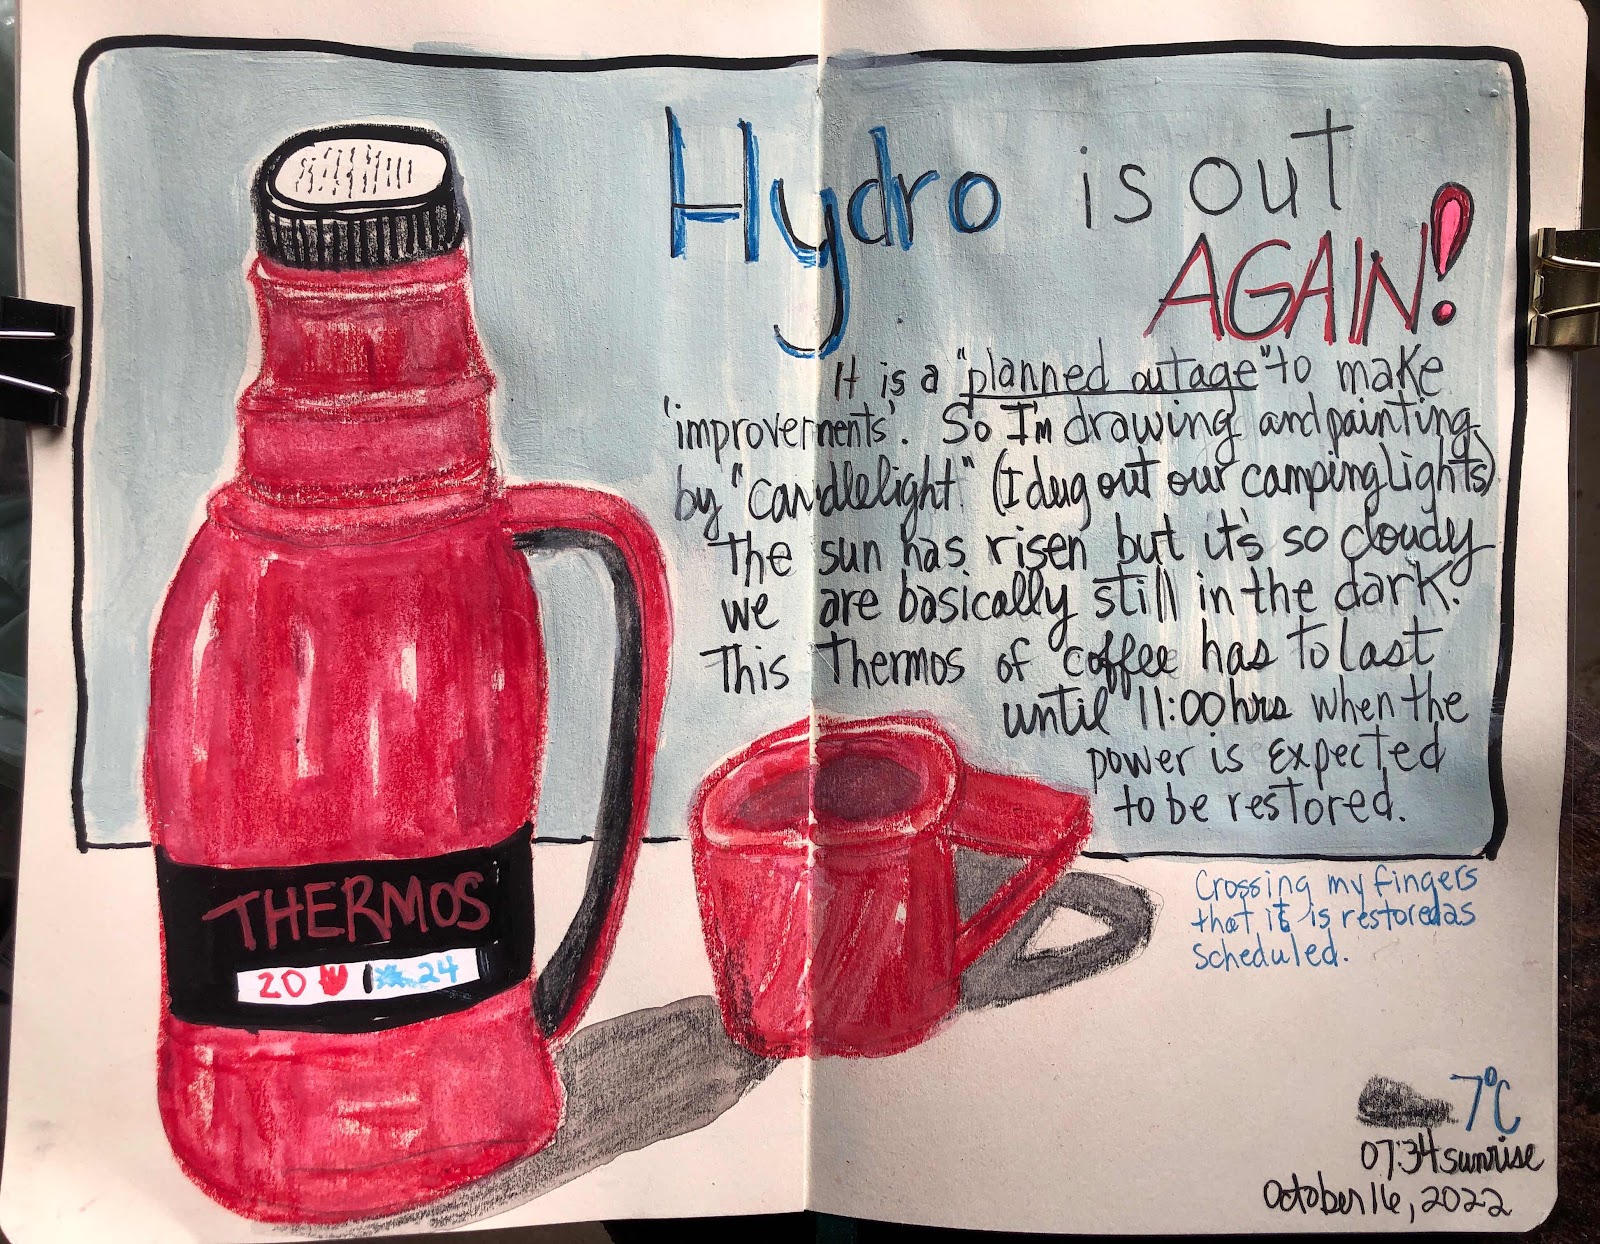 Hydro is out
AGAIN!
It is a "planned outage" to make
'improvements'. So I'm drawing and painting
by "candlelight." (I dug out our camping lights)
The sun has risen but it's so cloudy
we are basically still in the dark.
This Thermos of coffee has to last
until 11:00hrs when the
power is expected
to be restored.
THERMOS
20 24
Crossing my fingers
that it is restored as
scheduled.
7°C
07:34 sunrise
October 16, 2022